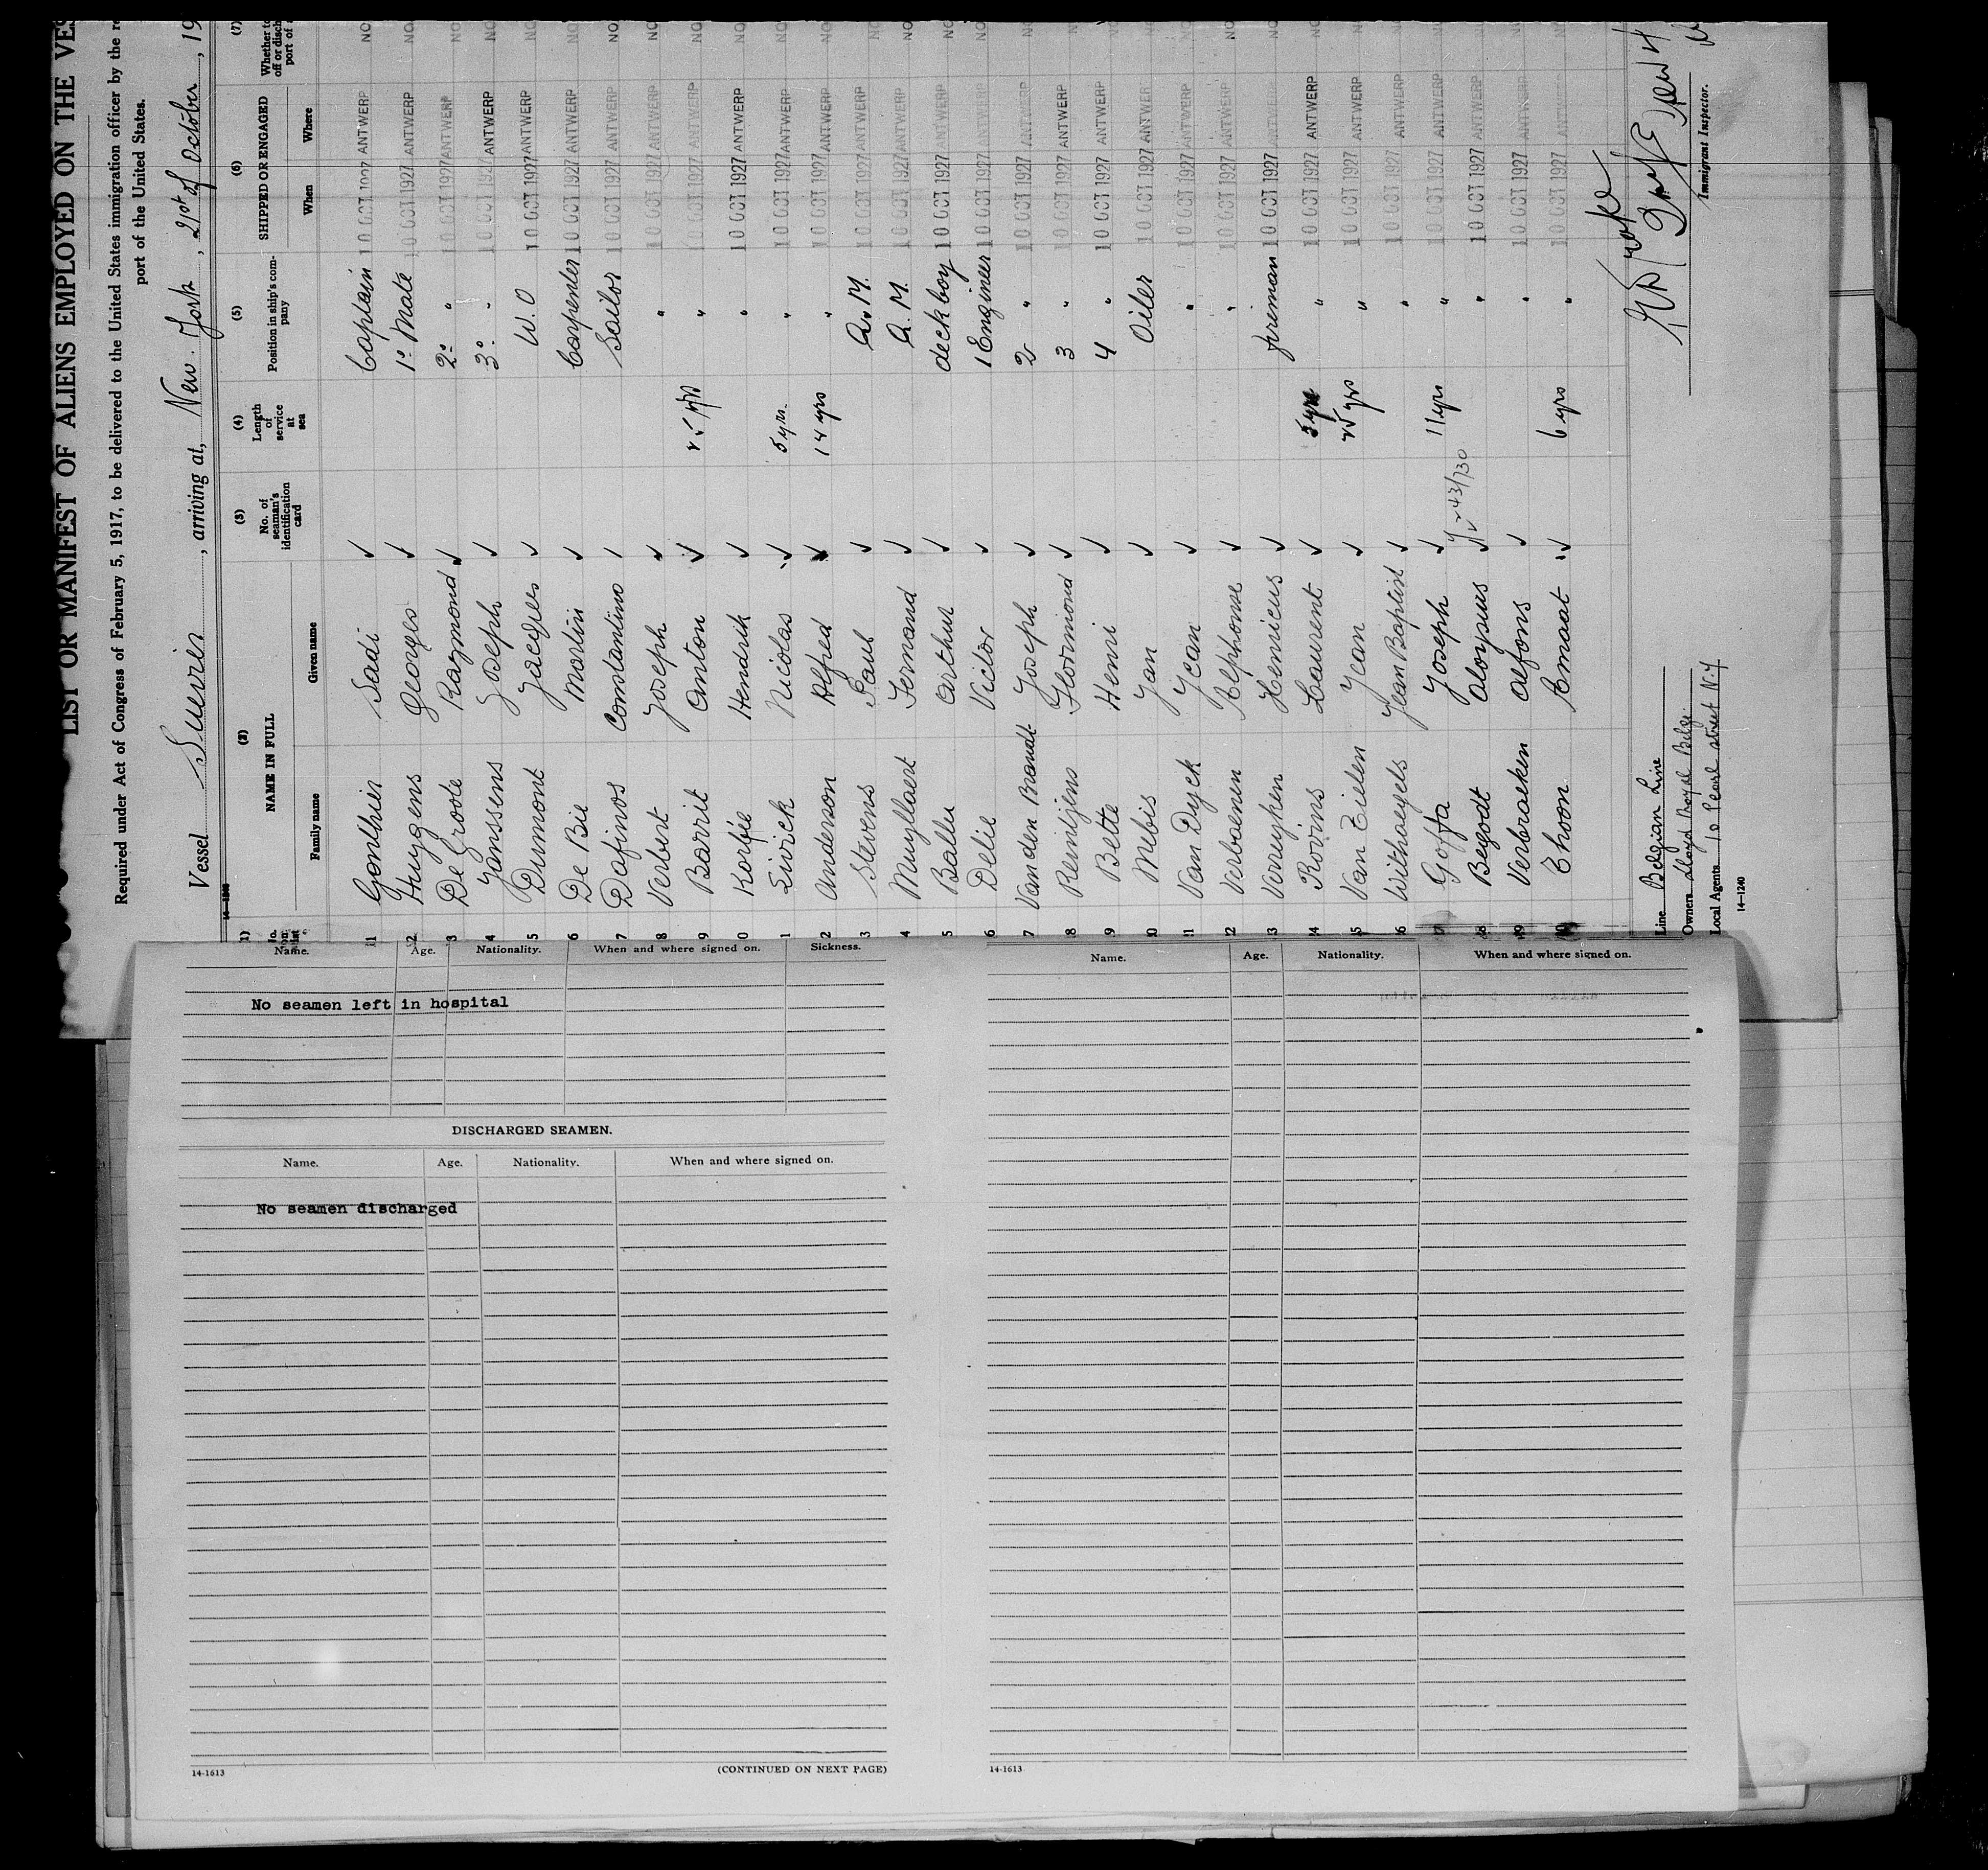 LIST OR MANIFEST OF ALIENS EMPLOYED ON THE VES
Required under Act of Congress of February 5, 1917, to be delivered to the United States immigration officer by the re
port of the United States.
Vessel Suevier, arriving at, New. York, 21st of October, 19
14-1240
(1) (2) (3) (4) (5) (6) (7)
NAME IN FULL No. of seaman's identification card Length of service at sea Position in ship's company SHIPPED OR ENGAGED Whether to
off or disch
port of
Family name Given name When Where
1 Gonthier Sadi Captain 10 OCT 1927 ANTWERP NO
2 Huygens Georges 1° Mate 10 OCT 1927 ANTWERP NO
3 De Groote Raymond 2° " 10 OCT 1927 ANTWERP NO
4 Janssens Joseph 3° " 10 OCT 1927 ANTWERP NO
5 Dumont Jacques W. O 10 OCT 1927 ANTWERP NO
6 De Bie Martin Carpenter 10 OCT 1927 ANTWERP NO
7 Dafinos Constantino Sailor 10 OCT 1927 ANTWERP NO
8 Verbert Joseph " 10 OCT 1927 ANTWERP NO
9 Barrit Anton yrs " 10 OCT 1927 ANTWERP NO
0 Korfié Hendrik " 10 OCT 1927 ANTWERP NO
1 Livick Nicolas 5 yrs. " 10 OCT 1927 ANTWERP NO
2 Anderson Alfred 14 yrs " 10 OCT 1927 ANTWERP NO
3 Stevens Paul 10 OCT 1927 ANTWERP NO
4 Muyllaert Fernand 10 OCT 1927 ANTWERP NO
5 Ballu Arthur deck boy 10 OCT 1927 ANTWERP NO
6 Delie Victor 1 Engineer 10 OCT 1927 ANTWERP NO
7 Van den Brandt Joseph 2 " 10 OCT 1927 ANTWERP NO
8 Remitjens Florimond 3 " 10 OCT 1927 ANTWERP NO
9 Bette Henri 4 " 10 OCT 1927 ANTWERP NO
0 Mebis Jan Oiler 10 OCT 1927 ANTWERP NO
1 Van Dyck Jean " 10 OCT 1927 ANTWERP NO
2 Verbaenen Alphonse " 10 OCT 1927 ANTWERP NO
3 Verryken Henricus fireman 10 OCT 1927 ANTWERP NO
4 Rovins Laurent 5 yrs " 10 OCT 1927 ANTWERP NO
5 Van Eielen Jean yrs " 10 OCT 1927 ANTWERP NO
6 Withaegels Jean Baptist " 10 OCT 1927 ANTWERP NO
7 Goffa Joseph 11 yrs " 10 OCT 1927 ANTWERP NO
8 Begodt Aloysius " 10 OCT 1927 ANTWERP NO
9 Verbraeken Alfons " 10 OCT 1927 ANTWERP NO
Thoon 6 yrs " 10 OCT 1927 ANTWERP NO
Line Belgian Line
Owners Lloyd Royal Belge
Local Agents 10 Pearl street N.Y
Immigrant Inspector.
14-1240
Name. Age. Nationality. When and where signed on. Sickness.
No seamen left in hospital
DISCHARGED SEAMEN.
Name. Age. Nationality. When and where signed on.
No seamen discharged
14-1613
(CONTINUED ON NEXT PAGE)
Name. Age. Nationality. When and where signed on.
14-1613